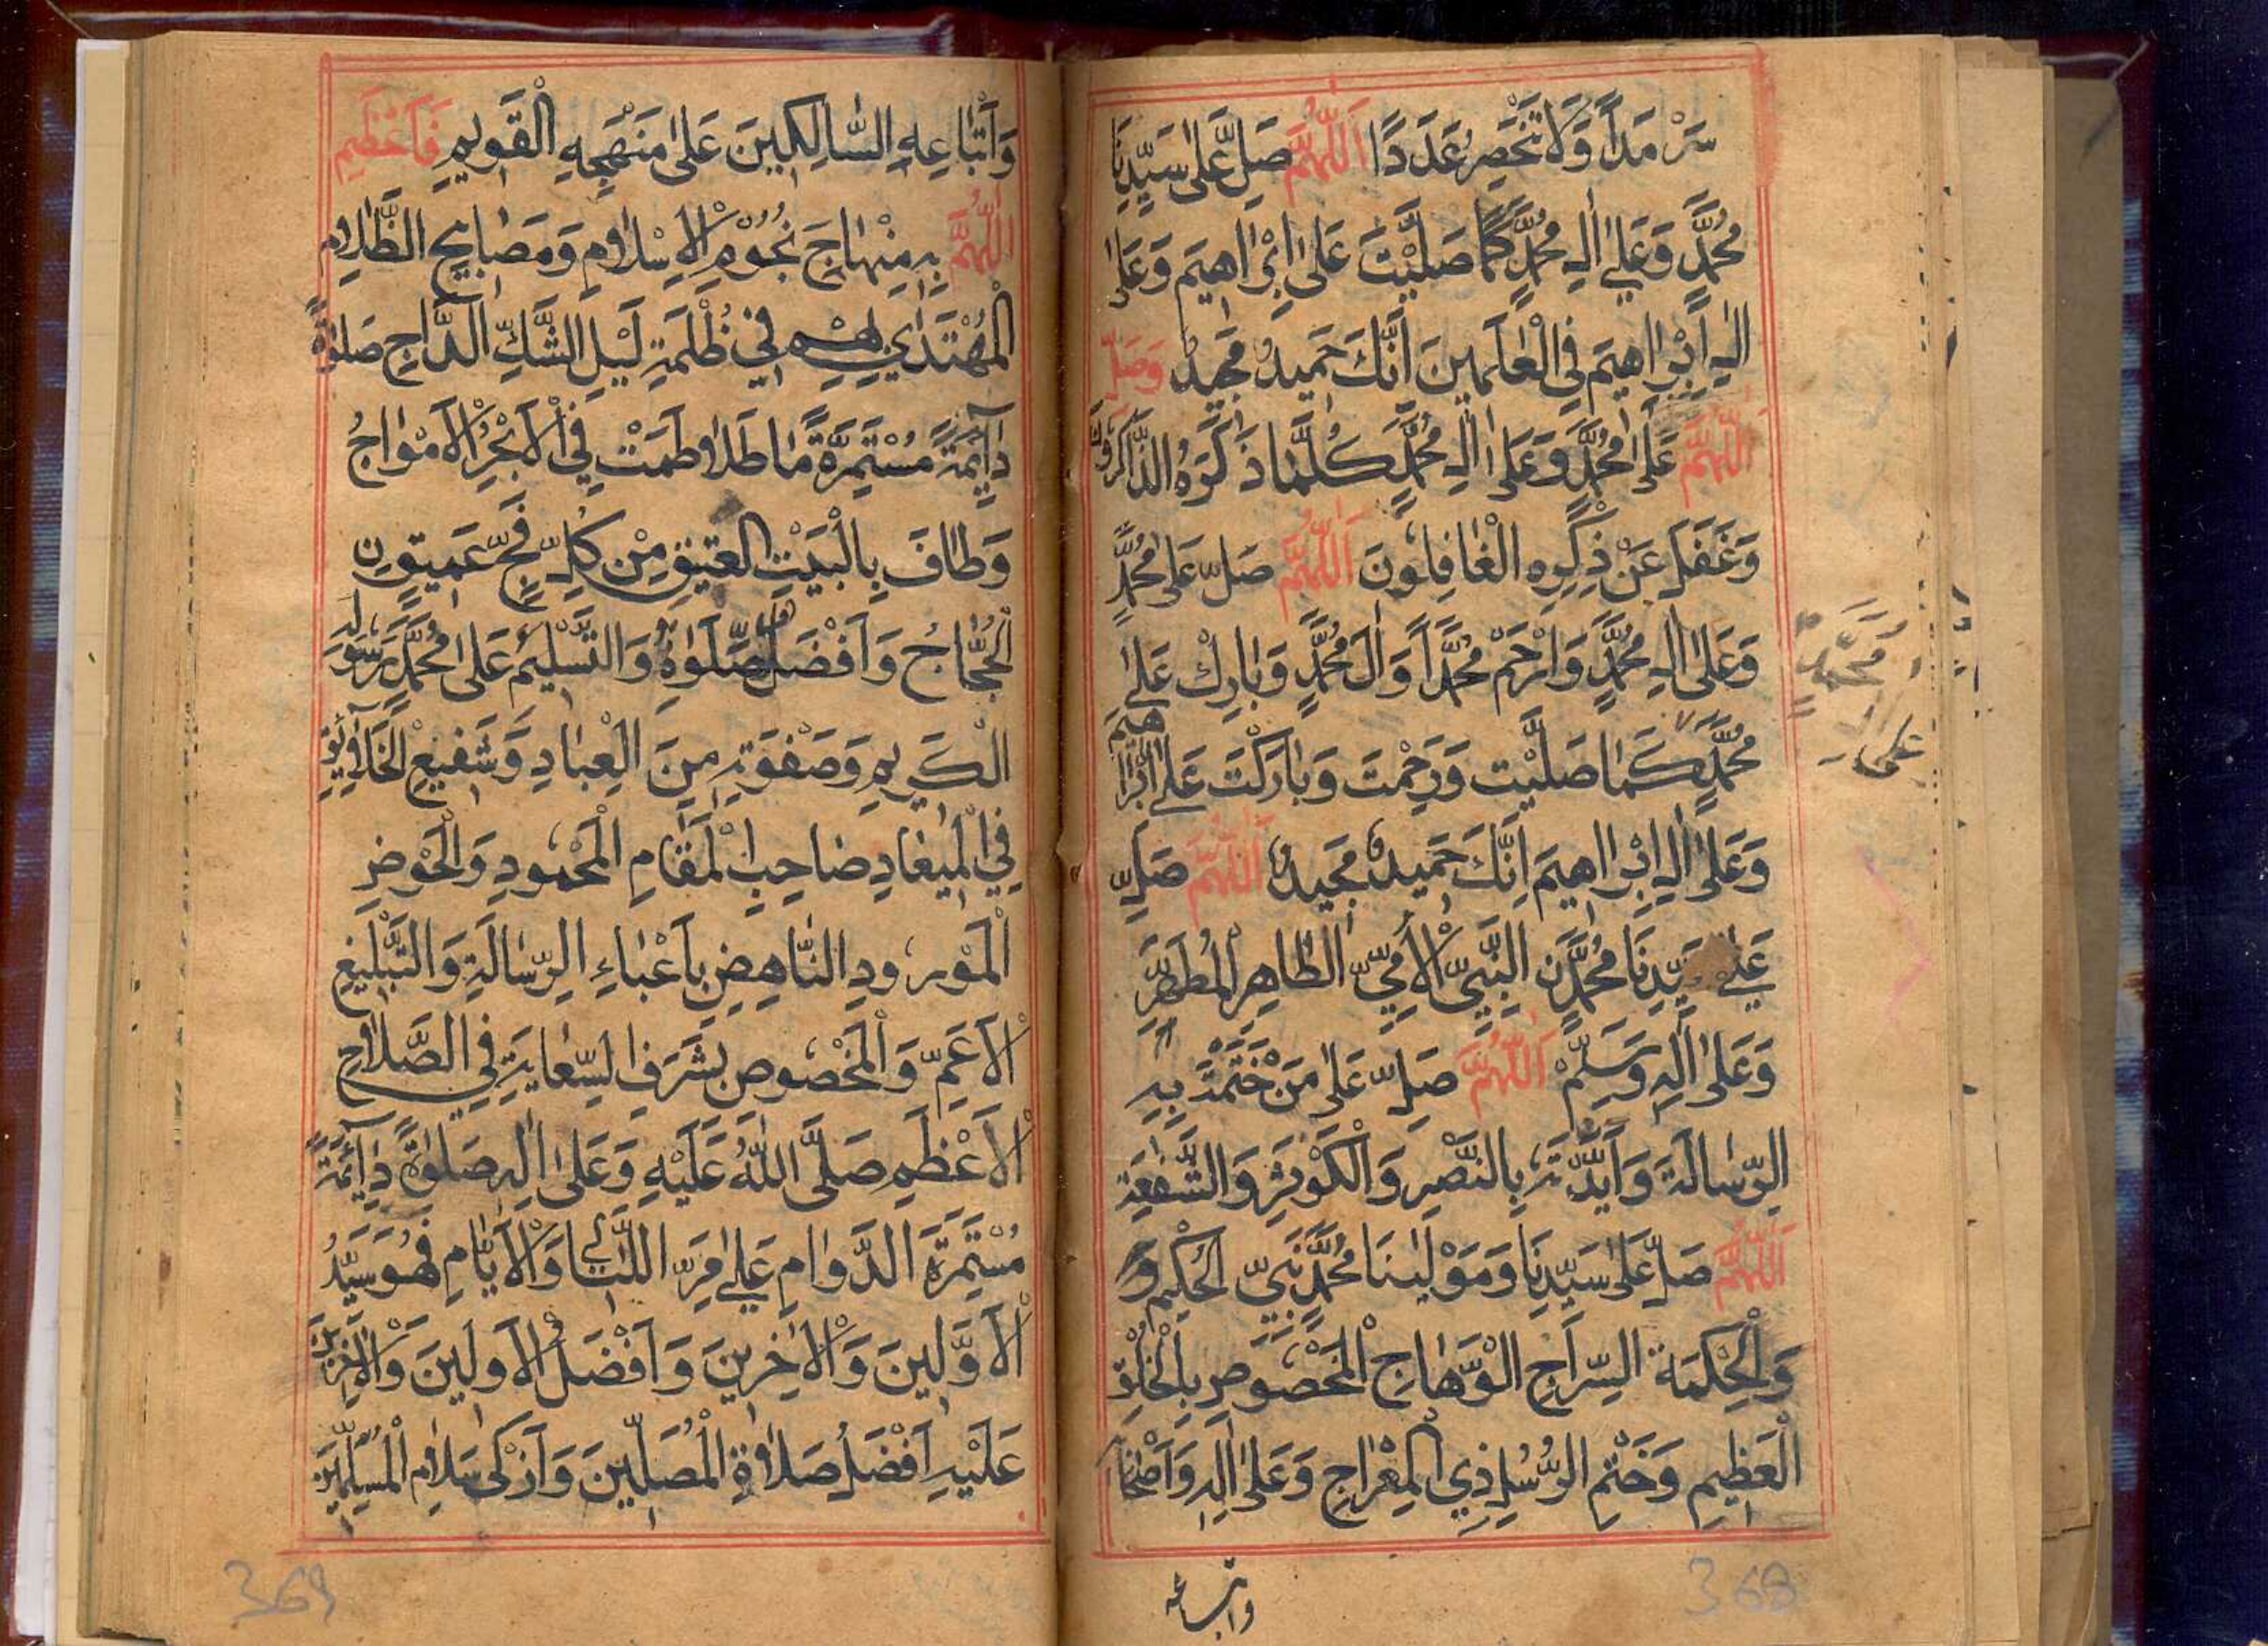 سَرْمَدًا وَلَا تَنْحَصِرُ عَدَدًا اَللّٰهُمَّ صَلِّ عَلٰى سَيِّدِنَا
مُحَمَّدٍ وَعَلٰى اٰلِ مُحَمَّدٍ كَمَا صَلَّيْتَ عَلٰى اِبْرَاهِيمَ وَعَلٰى
اٰلِ اِبْرَاهِيمَ فِى الْعَالَمِينَ اِنَّكَ حَمِيدٌ مَجِيدٌ وَصَلِّ
اللّٰهُمَّ عَلٰى مُحَمَّدٍ وَعَلٰى اٰلِ مُحَمَّدٍ كُلَّمَا ذَكَرَهُ الذَّاكِرُونَ
وَغَفَلَ عَنْ ذِكْرِهِ الْغَافِلُونَ اَللّٰهُمَّ صَلِّ عَلٰى مُحَمَّدٍ
وَعَلٰى اٰلِ مُحَمَّدٍ وَارْحَمْ مُحَمَّدًا وَاٰلَ مُحَمَّدٍ وَبَارِكْ عَلٰى
مُحَمَّدٍ كَمَا صَلَّيْتَ وَرَحِمْتَ وَبَارَكْتَ عَلٰى اِبْرَاهِيمَ
وَعَلٰى اٰلِ اِبْرَاهِيمَ اِنَّكَ حَمِيدٌ مَجِيدٌ اَللّٰهُمَّ صَلِّ
عَلٰى سَيِّدِنَا مُحَمَّدٍ نِ النَّبِيِّ الْاُمِّيِّ الطَّاهِرِ الْمُطَهَّرِ
وَعَلٰى اٰلِهِ وَسَلِّمْ اَللّٰهُمَّ صَلِّ عَلٰى مَنْ خَتَمْتَ بِهِ
الرِّسَالَةَ وَاَيَّدْتَهُ بِالنَّصْرِ وَالْكَوْثَرِ وَالشَّفٰعَةِ
اَللّٰهُمَّ صَلِّ عَلٰى سَيِّدِنَا وَمَوْلٰينَا مُحَمَّدٍ نَبِيِّ الْحُكْمِ وَ
وَالْحِكْمَةِ السِّرَاجِ الْوَهَّاجِ الْمَخْصُوصِ بِالْخُلُقِ
الْعَظِيمِ وَخَتْمِ الرُّسُلِ ذِي الْمِعْرَاجِ وَعَلٰى اٰلِهِ وَاَصْحَا
مُحَمَّدٍ
عَلٰى اٰلِ
واتباعه
368
وَاَتْبَاعِهِ السَّالِكِينَ عَلٰى مَنْهَجِهِ الْقَوِيمِ فَاَعْظِمِ
اللّٰهُمَّ بِهِ مِنْهَاجَ نُجُوْمِ الْاِسْلَامِ وَمَصَابِيحِ الظَّلَامِ
الْمُهْتَدَىٰ بِهِمْ فِي ظُلْمَةِ لَيْلِ الشَّكِّ الدَّاجِ صَلٰوةً
دَائِمَةً مُسْتَمِرَّةً مَا تَلَاطَمَتْ فِي الْاَبْحُرِ الْاَمْوَاجُ
وَطَافَ بِالْبَيْتِ الْعَتِيقِ مِنْ كُلِّ فَجٍّ عَمِيقٍ نِ
الْحُجَّاجُ وَاَفْضَلُ الصَّلَوٰةِ وَالتَّسْلِيمُ عَلٰى مُحَمَّدٍ رَسُولِهِ
الْكَرِيمِ وَصَفْوَتِهِ مِنَ الْعِبَادِ وَشَفِيعِ الْخَلَائِقِ
فِي الْمِيعَادِ صَاحِبِ الْمَقَامِ الْمَحْمُودِ وَالْحَوْضِ
الْمَوْرُودِ النَّاهِضِ بِاَعْبَاءِ الرِّسَالَةِ وَالتَّبْلِيغِ
الْاَعَمِّ وَالْمَخْصُوصِ بِشَرَفِ السِّعَايَةِ فِي الصَّلَاحِ
الْاَعْظَمِ صَلَّى اللّٰهُ عَلَيْهِ وَعَلٰى اٰلِهِ صَلٰوةً دَائِمَةً
مُسْتَمِرَّةَ الدَّوَامِ عَلٰى مَرِّ اللَّيَالِي وَالْاَيَّامِ فَهُوَ سَيِّدُ
الْاَوَّلِينَ وَالْاٰخِرِينَ وَاَفْضَلُ الْاَوَّلِينَ وَالْاٰخِرِينَ
عَلَيْهِ اَفْضَلُ صَلَاةِ الْمُصَلِّينَ وَاَزْكٰى سَلَامِ الْمُسَلِّمِينَ
369